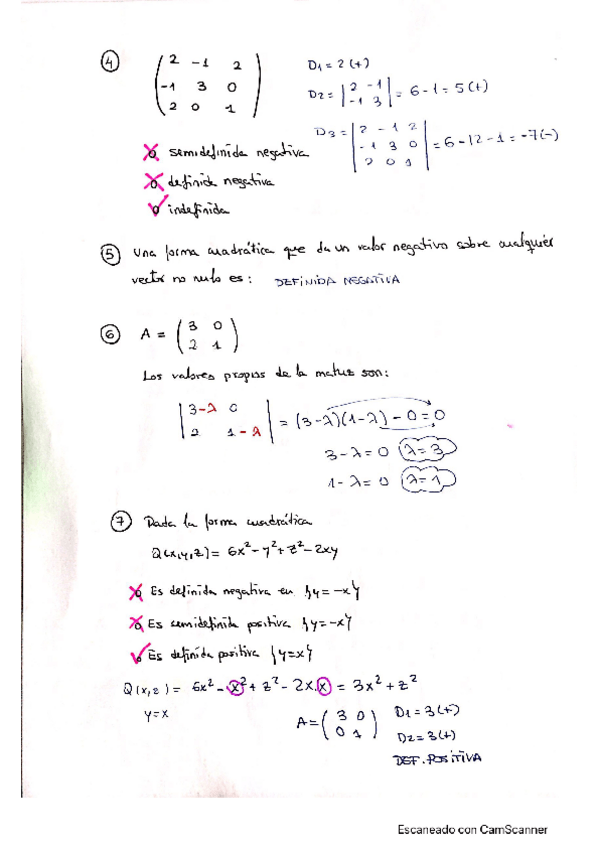 4
2 -1 2
-1 3 0
2 0 1
D1 = 2 (+)
D2 = |2 -1| = 6 - 1 = 5 (+)
-1 3
D3 = |2 -1 2|
-1 3 0 = 6 - 12 - 1 = -7 (-)
2 0 1
semidefinida negativa
definida negativa
indefinida
5 Una forma cuadrática que da un valor negativo sobre cualquier
vector no nulo es: DEFINIDA NEGATIVA
6 A = (3 0
2 1)
Los valores propios de la matriz son:
|3-λ 0
2 1-λ| = (3-λ)(1-λ) - 0 = 0
3-λ = 0 λ=3
1-λ = 0 λ=1
7 Dada la forma cuadrática
Q(x,y,z) = 6x²-y²+z²-2xy
Es definida negativa en {y=-x}
Es semidefinida positiva {y=-x}
Es definida positiva {y=x}
Q(x,z) = 6x² - x² + z² - 2x.x = 3x² + z²
y=x
A = (3 0
0 1)
D1 = 3 (+)
D2 = 3 (+)
DEF. POSITIVA
Escaneado con CamScanner